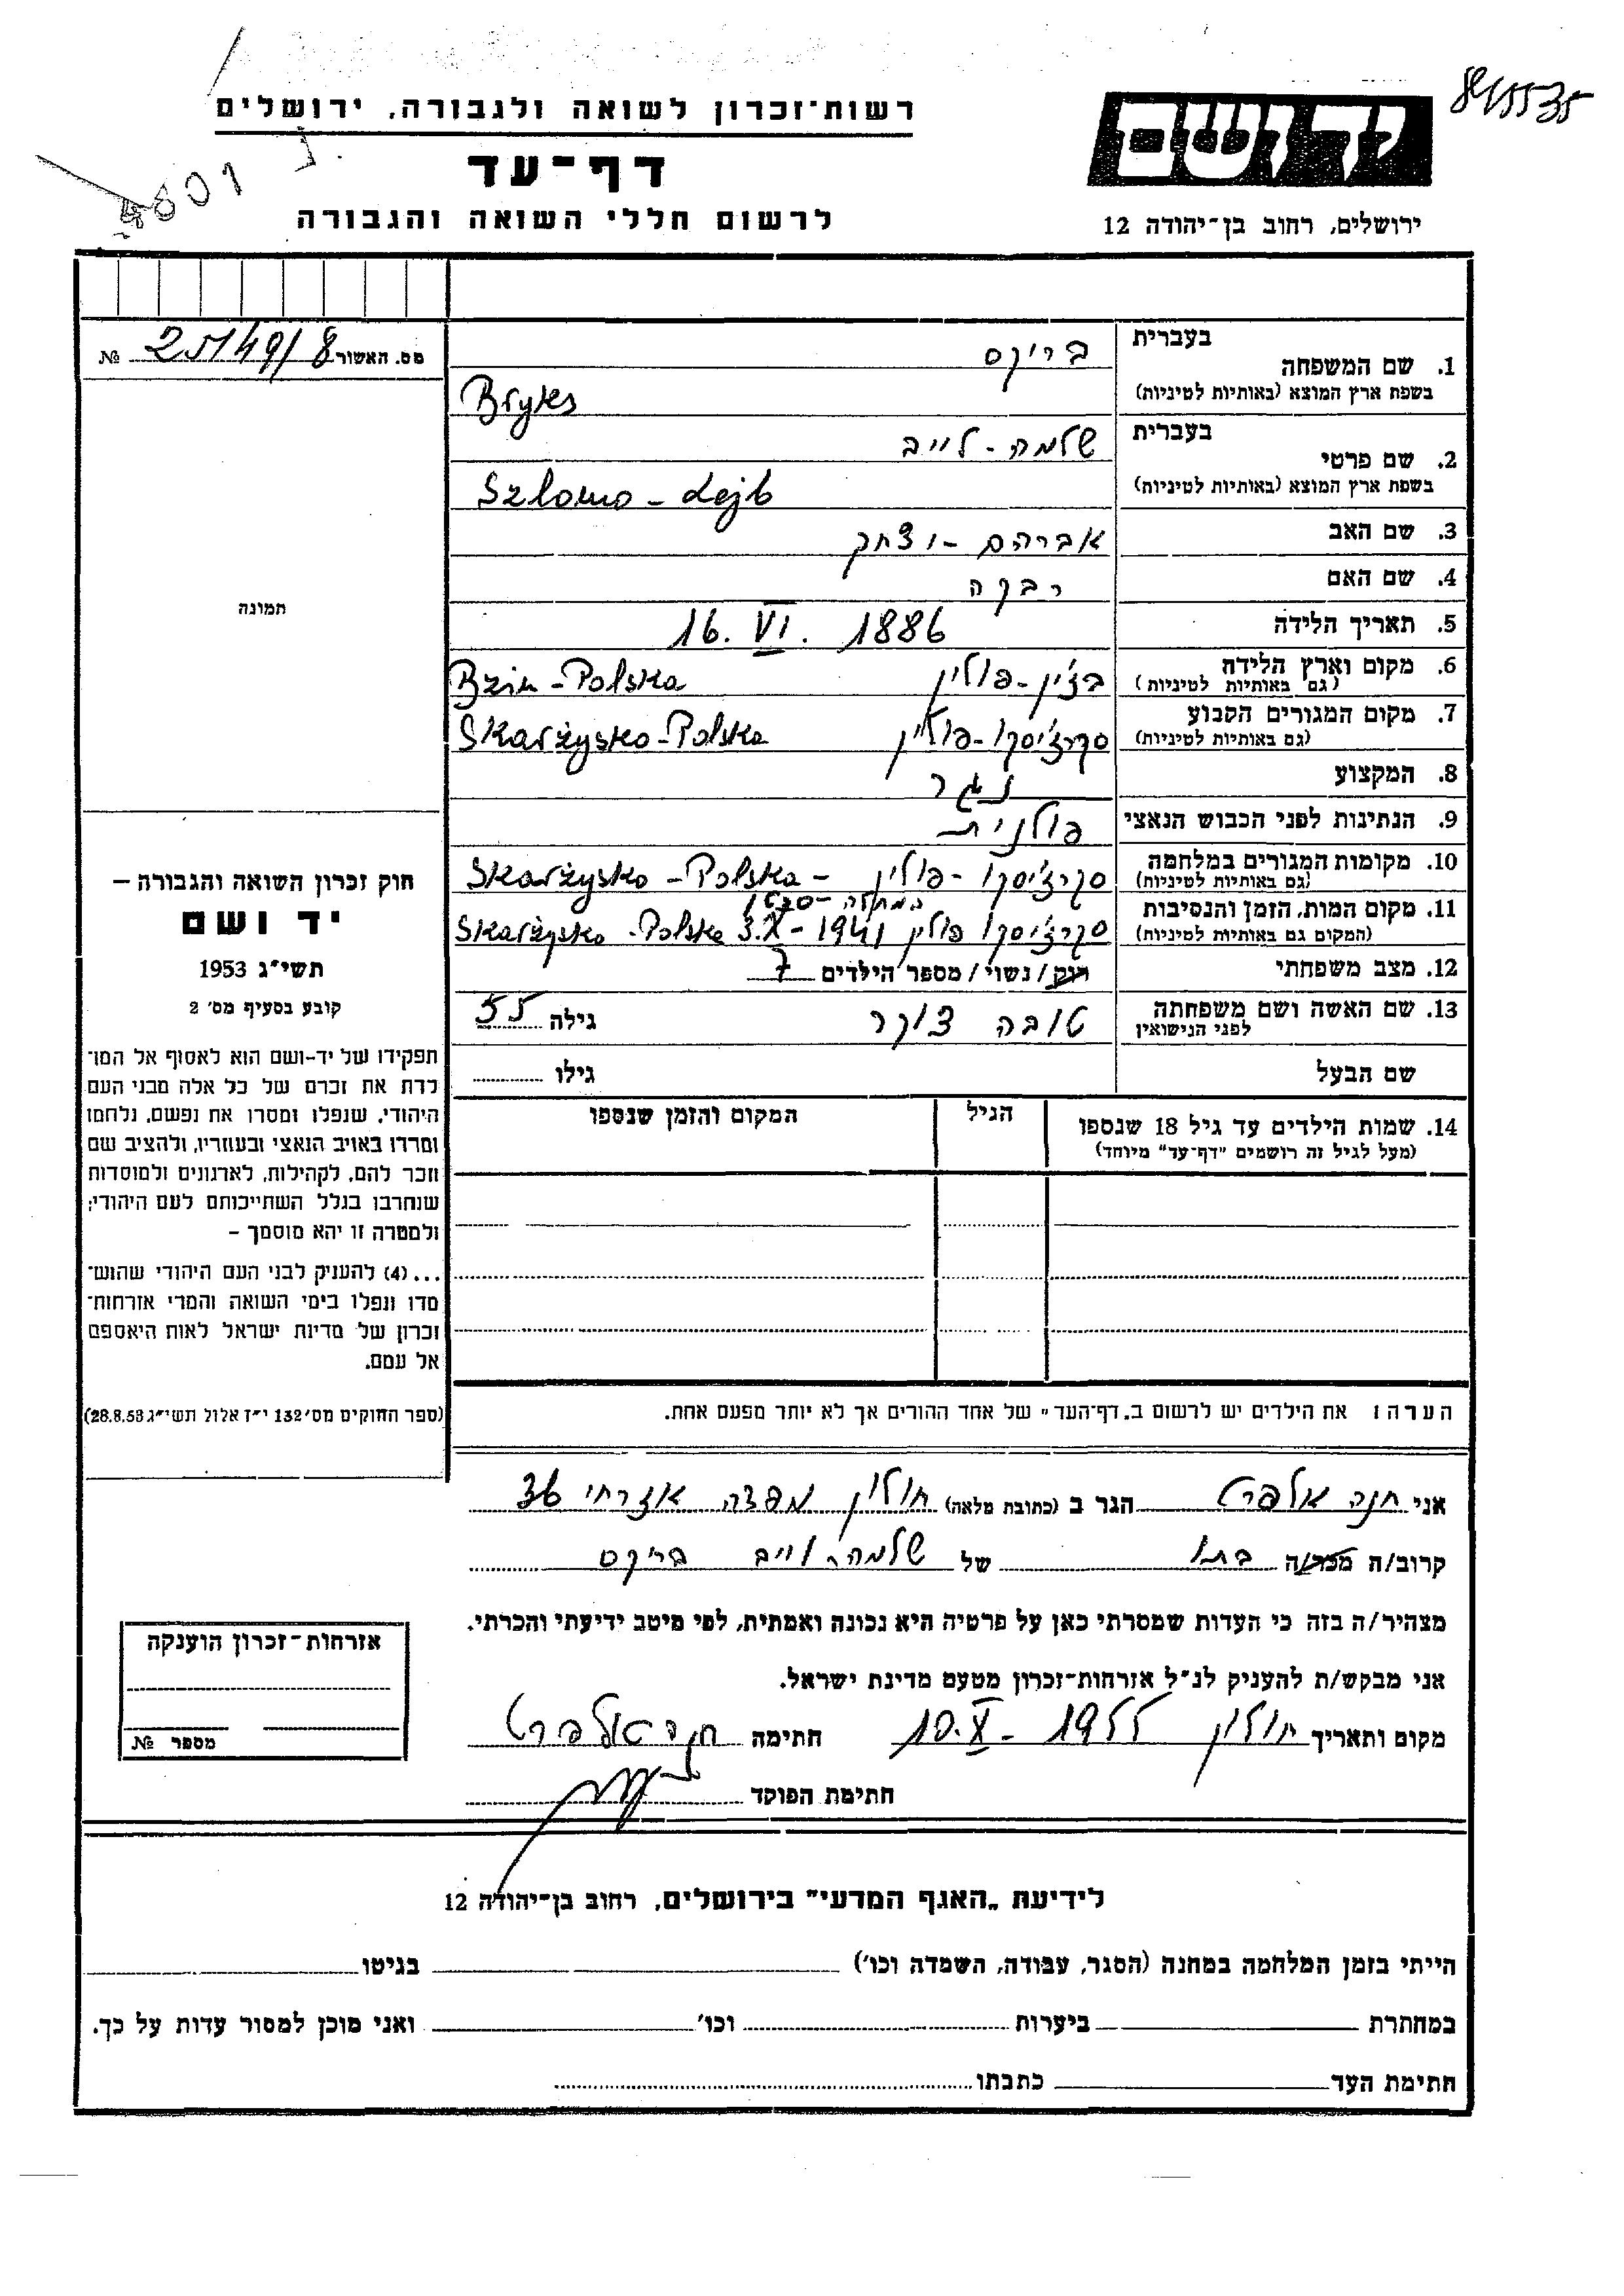 רשות־זכרון לשואה ולגבורה, ירושלים
דף־עד
לרשום חללי השואה והגבורה
ידושם
ירושלים, רחוב בן־יהודה 12
מס. האשור 25149/8 №
תמונה
1. שם המשפחה בעברית בריקס
בשפת ארץ המוצא (באותיות לטיניות) Bryks
2. שם פרטי בעברית שלמה - לייב
בשפת ארץ המוצא (באותיות לטיניות) Szlomo - Lejb
3. שם האב אברהם - יצחק
4. שם האם רבקה
5. תאריך הלידה 16. VI. 1886
6. מקום וארץ הלידה (גם באותיות לטיניות) בז'ין - פולין Bzin - Polska
7. מקום המגורים הקבוע (גם באותיות לטיניות) סקרז'יסקו - פולין Skarżysko - Polska
8. המקצוע נגר
9. הנתינות לפני הכבוש הנאצי פולנית
10. מקומות המגורים במלחמה (גם באותיות לטיניות) סקרז'יסקו - פולין - Skarżysko - Polska
11. מקום המות, הזמן והנסיבות (המקום גם באותיות לטיניות) סקרז'יסקו פולין 3.X - 1941 Skarżysko - Polska
12. מצב משפחתי רוק / נשוי / מספר הילדים 7
13. שם האשה ושם משפחתה לפני הנישואין טובה צוקר גילה 55
שם הבעל גילו
14. שמות הילדים עד גיל 18 שנספו
(מעל לגיל זה רושמים "דף־עד" מיוחד)
הגיל
המקום והזמן שנספו
הערה: את הילדים יש לרשום ב„דף־העד" של אחד ההורים אך לא יותר מפעם אחת.
חוק זכרון השואה והגבורה –
יד ושם
תשי״ג 1953
קובע בסעיף מס׳ 2
תפקידו של יד-ושם הוא לאסוף אל המו־
לדת את זכרם של כל אלה מבני העם
היהודי, שנפלו ומסרו את נפשם, נלחמו
ומרדו באויב הנאצי ובעוזריו, ולהציב שם
וזכר להם, לקהילות, לארגונים ולמוסדות
שנחרבו בגלל השתייכותם לעם היהודי;
ולמטרה זו יהא מוסמך –
...(4) להעניק לבני העם היהודי שהוש־
מדו ונפלו בימי השואה והמרי אזרחות־
זכרון של מדינת ישראל לאות היאספם
אל עמם.
(ספר החוקים מס׳ 132 י״ז אלול תשי״ג 28.8.53)
אני חנה אלפרט הגר ב (כתובת מלאה) חולון אזרחי 36
קרוב/ה בתו של שלמה לייב בריקס
מצהיר/ה בזה כי העדות שמסרתי כאן על פרטיה היא נכונה ואמתית, לפי מיטב ידיעתי והכרתי.
אני מבקש/ת להעניק לנ״ל אזרחות־זכרון מטעם מדינת ישראל.
מקום ותאריך חולון 10.X - 1955 חתימה חנה אלפרט
חתימת הפוקד
אזרחות־זכרון הוענקה
מספר №
לידיעת „האגף המדעי" בירושלים, רחוב בן־יהודה 12
הייתי בזמן המלחמה במחנה (הסגר, עבודה, השמדה וכו׳) בגיטו
במחתרת ביערות וכו׳ ואני מוכן למסור עדות על כך.
חתימת העד כתבתו